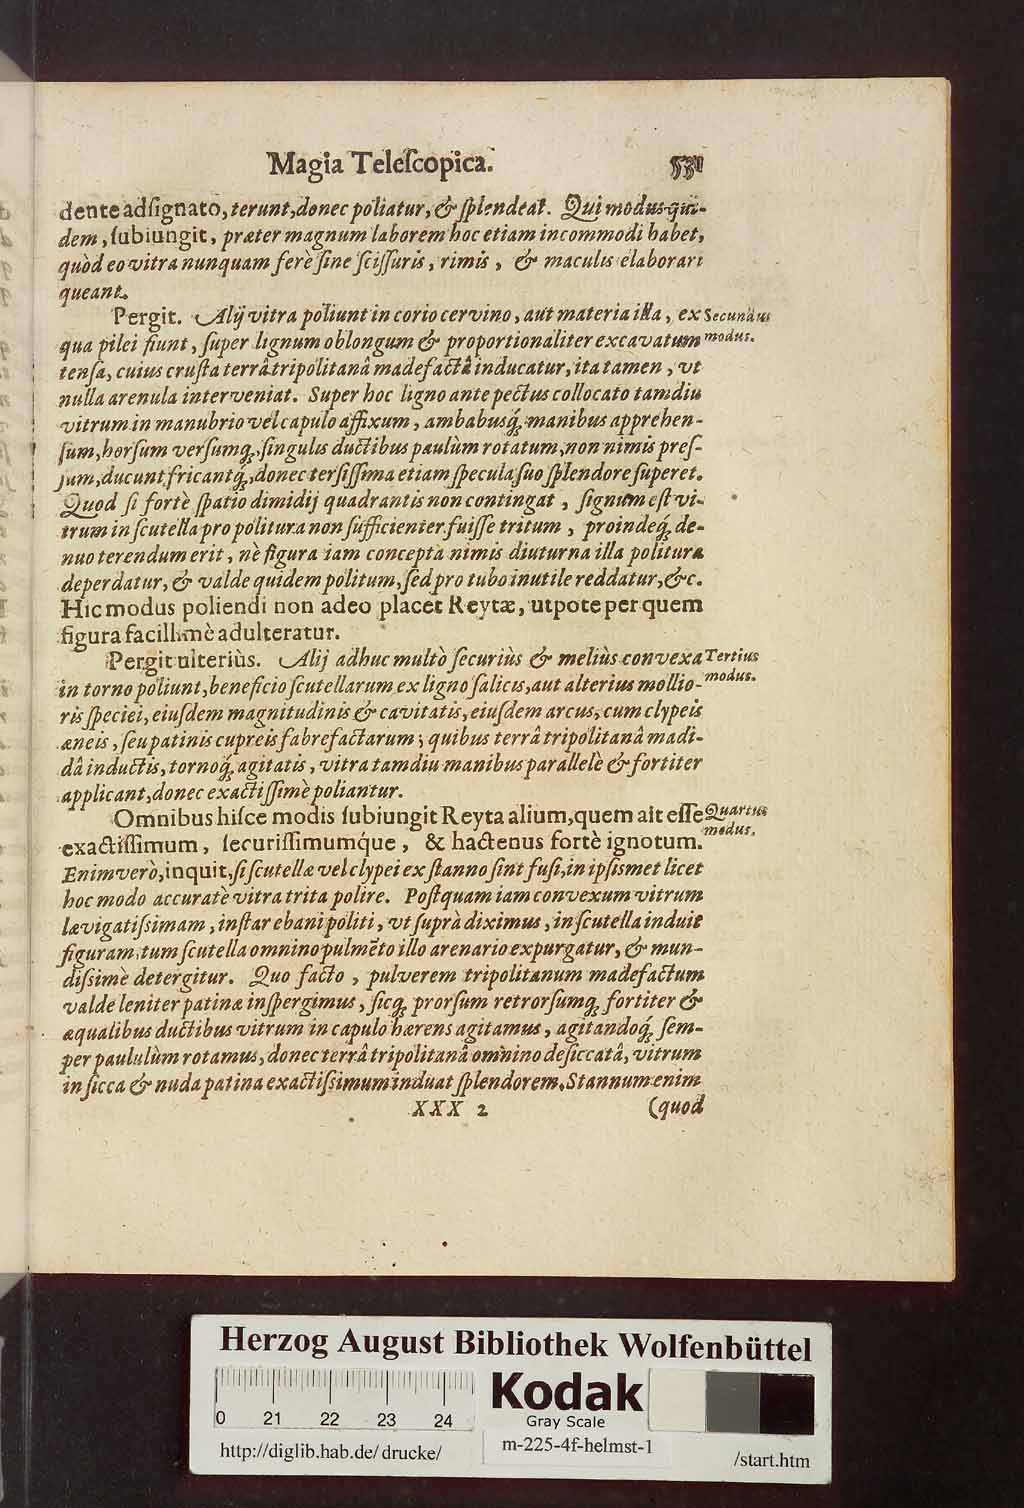 Magia Teleſcopica. 531
dente adſignato, terunt, donec poliatur, & ſplendeat. Qui modus qui-
dem, ſubiungit, præter magnum laborem hoc etiam incommodi habet,
quòd eo vitra nunquam ferè ſine ſciſſuris, rimis, & maculis elaborari
queant.
Pergit. Alij vitra poliunt in corio cervino, aut materia illa, ex
Secundus
qua pilei fiunt, ſuper lignum oblongum & proportionaliter excavatum
modus.
tenſa, cuius cruſta terrâ tripolitanâ madefactâ inducatur, ita tamen, vt
nulla arenula interveniat. Super hoc ligno ante pectus collocato tamdiu
vitrum in manubrio vel capulo affixum, ambabusq́, manibus apprehen-
ſum, horſum verſumq́, ſingulis ductibus paulùm rotatum, non nimis preſ-
ſum, ducunt, fricantq́, donec terſiſſima etiam ſpecula ſuo ſplendore ſuperet.
Quod ſi fortè ſpatio dimidij quadrantis non contingat, ſignum eſt vi-
trum in ſcutella pro politura non ſufficienter fuiſſe tritum, proindeq́, de-
nuo terendum erit, nè figura iam concepta nimis diuturna illa politura
deperdatur, & valde quidem politum, ſed pro tubo inutile reddatur, &c.
Hic modus poliendi non adeo placet Reytæ, utpote per quem
figura facillimè adulteratur.
Pergit ulteriùs. Alij adhuc multò ſecuriùs & meliùs convexa
Tertius
in torno poliunt, beneficio ſcutellarum ex ligno ſalicis, aut alterius mollio-
modus.
ris ſpeciei, eiuſdem magnitudinis & cavitatis, eiuſdem arcus, cum clypeis
æneis, ſeu patinis cupreis fabrefactarum; quibus terrâ tripolitanâ madi-
dâ inductis, tornoq́, agitatis, vitra tamdiu manibus parallelè & fortiter
applicant, donec exactiſſimè poliantur.
Omnibus hiſce modis ſubiungit Reyta alium, quem ait eſſe
Quartus
exactiſſimum, ſecuriſſimumq́ue, & hactenus fortè ignotum.
modus.
Enimverò, inquit, ſi ſcutellæ vel clypei ex ſtanno ſint fuſi, in ipſismet licet
hoc modo accuratè vitra trita polire. Poſtquam iam convexum vitrum
lævigatiſsimam, inſtar ebani politi, vt ſuprà diximus, in ſcutella induit
figuram, tum ſcutella omnino pulmēto illo arenario expurgatur, & mun-
diſsimè detergitur. Quo facto, pulverem tripolitanum madefactum
valde leniter patinæ inſpergimus, ſicq́, prorſum retrorſumq́, fortiter &
æqualibus ductibus vitrum in capulo hærens agitamus, agitandoq́, ſem-
per paululùm rotamus, donec terrâ tripolitanâ omnino deſiccatâ, vitrum
in ſicca & nuda patina exactiſsimum induat ſplendorem. Stannum enim
XXX 2 (quod
Herzog August Bibliothek Wolfenbüttel
0 21 22 23 24
Kodak
Gray Scale
http://diglib.hab.de/drucke/
m-225-4f-helmst-1
/start.htm